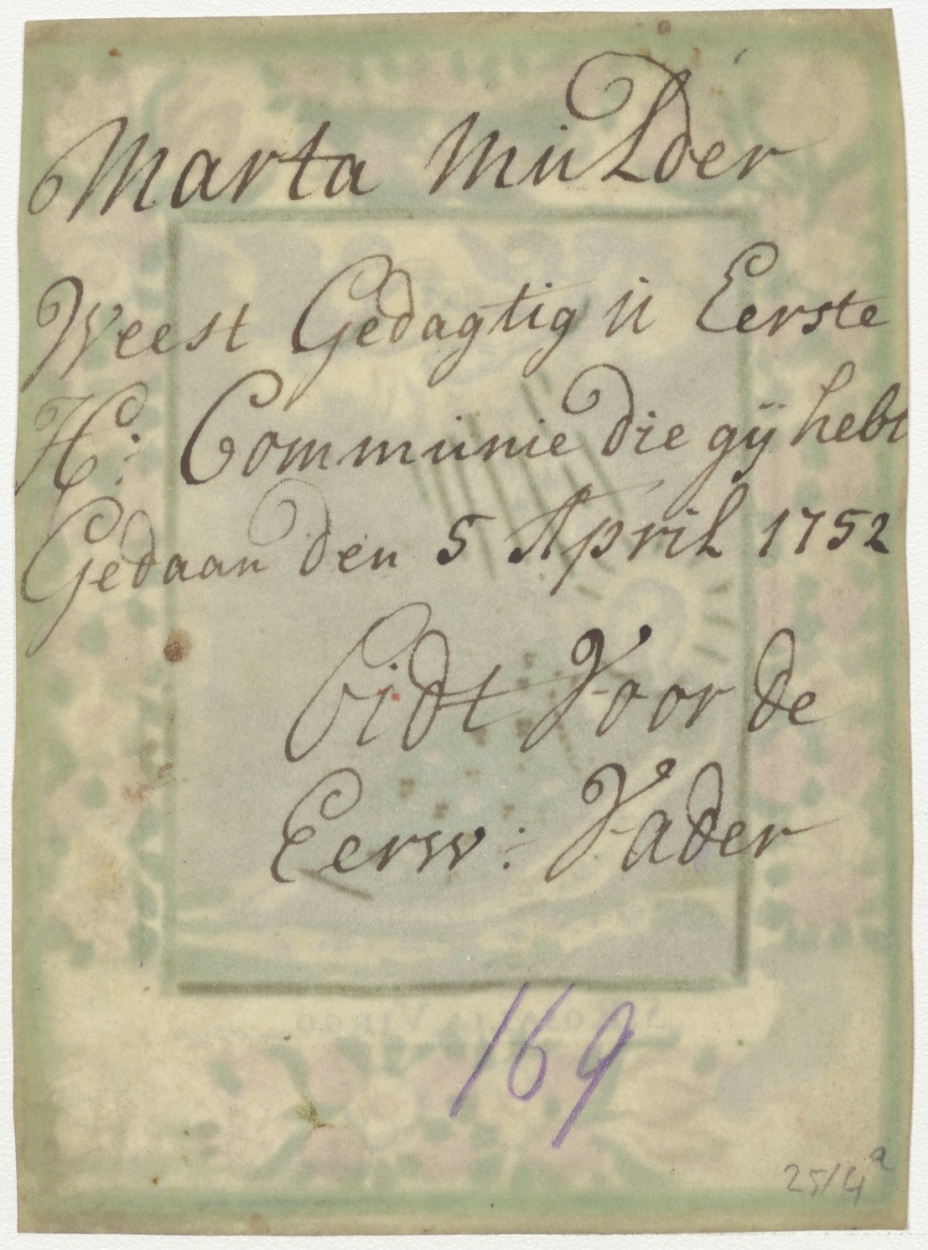 Marta Mulder
Weest Gedagtig u Eerste
H: Communie die gÿ hebt
Gedaan den 5 April 1752
Bidt Voor de
Eerw: Vader
S ROSALIA VIRGO
169
25/4a